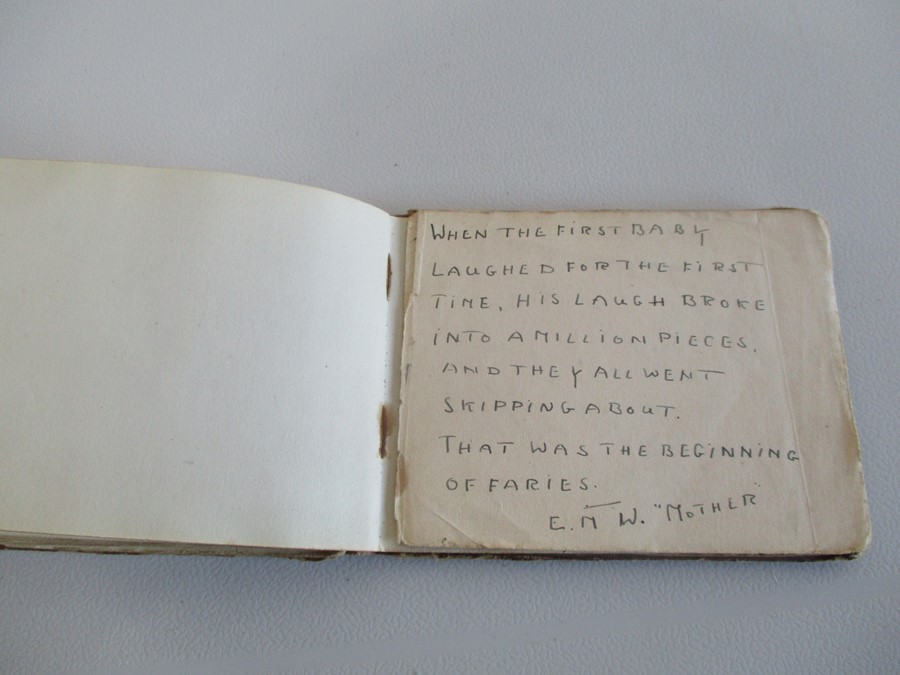 WHEN THE FiRST BABY
LAUGHED FOR THE FiRST
TiME, HiS LAUGH BROKE
iNTO A MiLLiON PiECES,
AND THEY ALL WENT
SKiPPiNG ABOUT.
THAT WAS THE BEGiNNiNG
OF FARiES.
E. M W. "MOTHER"